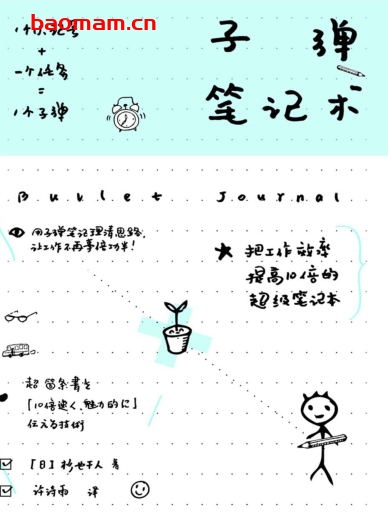 baomam.cn
1个小记号
+
一个任务
=
1个子弹
子弹
笔记术
Bullet Journal
用子弹笔记理清思路,
让工作不再事倍功半!
★ 把工作效率
提高10倍的
超级笔记本
超 箇条書き
「10倍速く、魅力的に」
伝える技術
☑ [日] 杉也千人 著
☑ 许诗雨 译